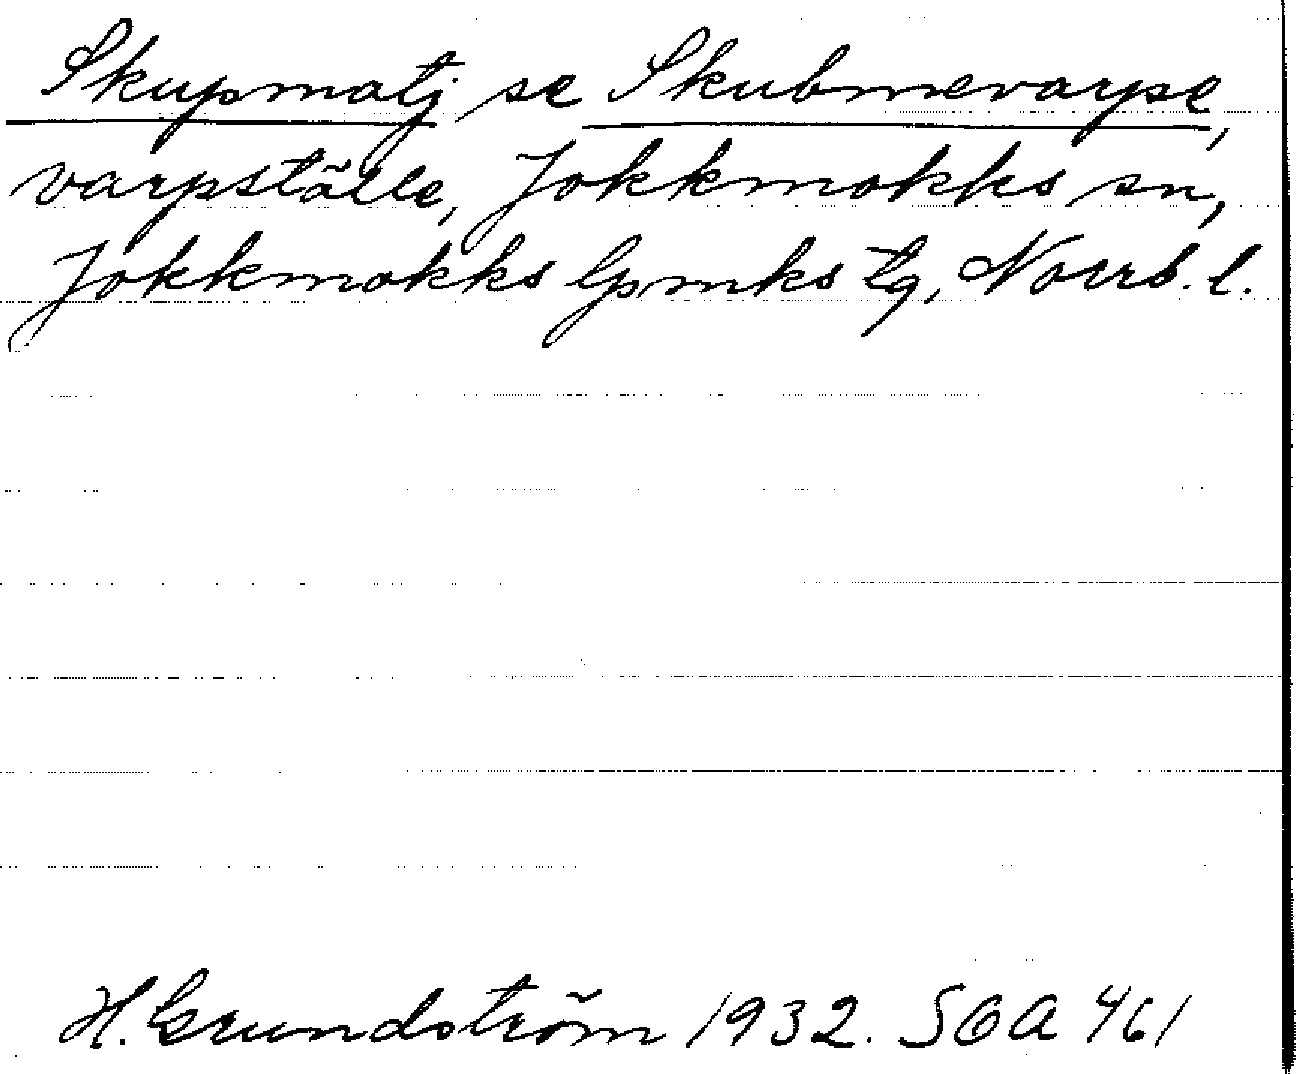 Skupmatj se Skubmevarpe,
varpställe, Jokkmokks sn,
Jokkmokks lpmks tg, Norrb. l.
H. Grundström 1932. SOA 461